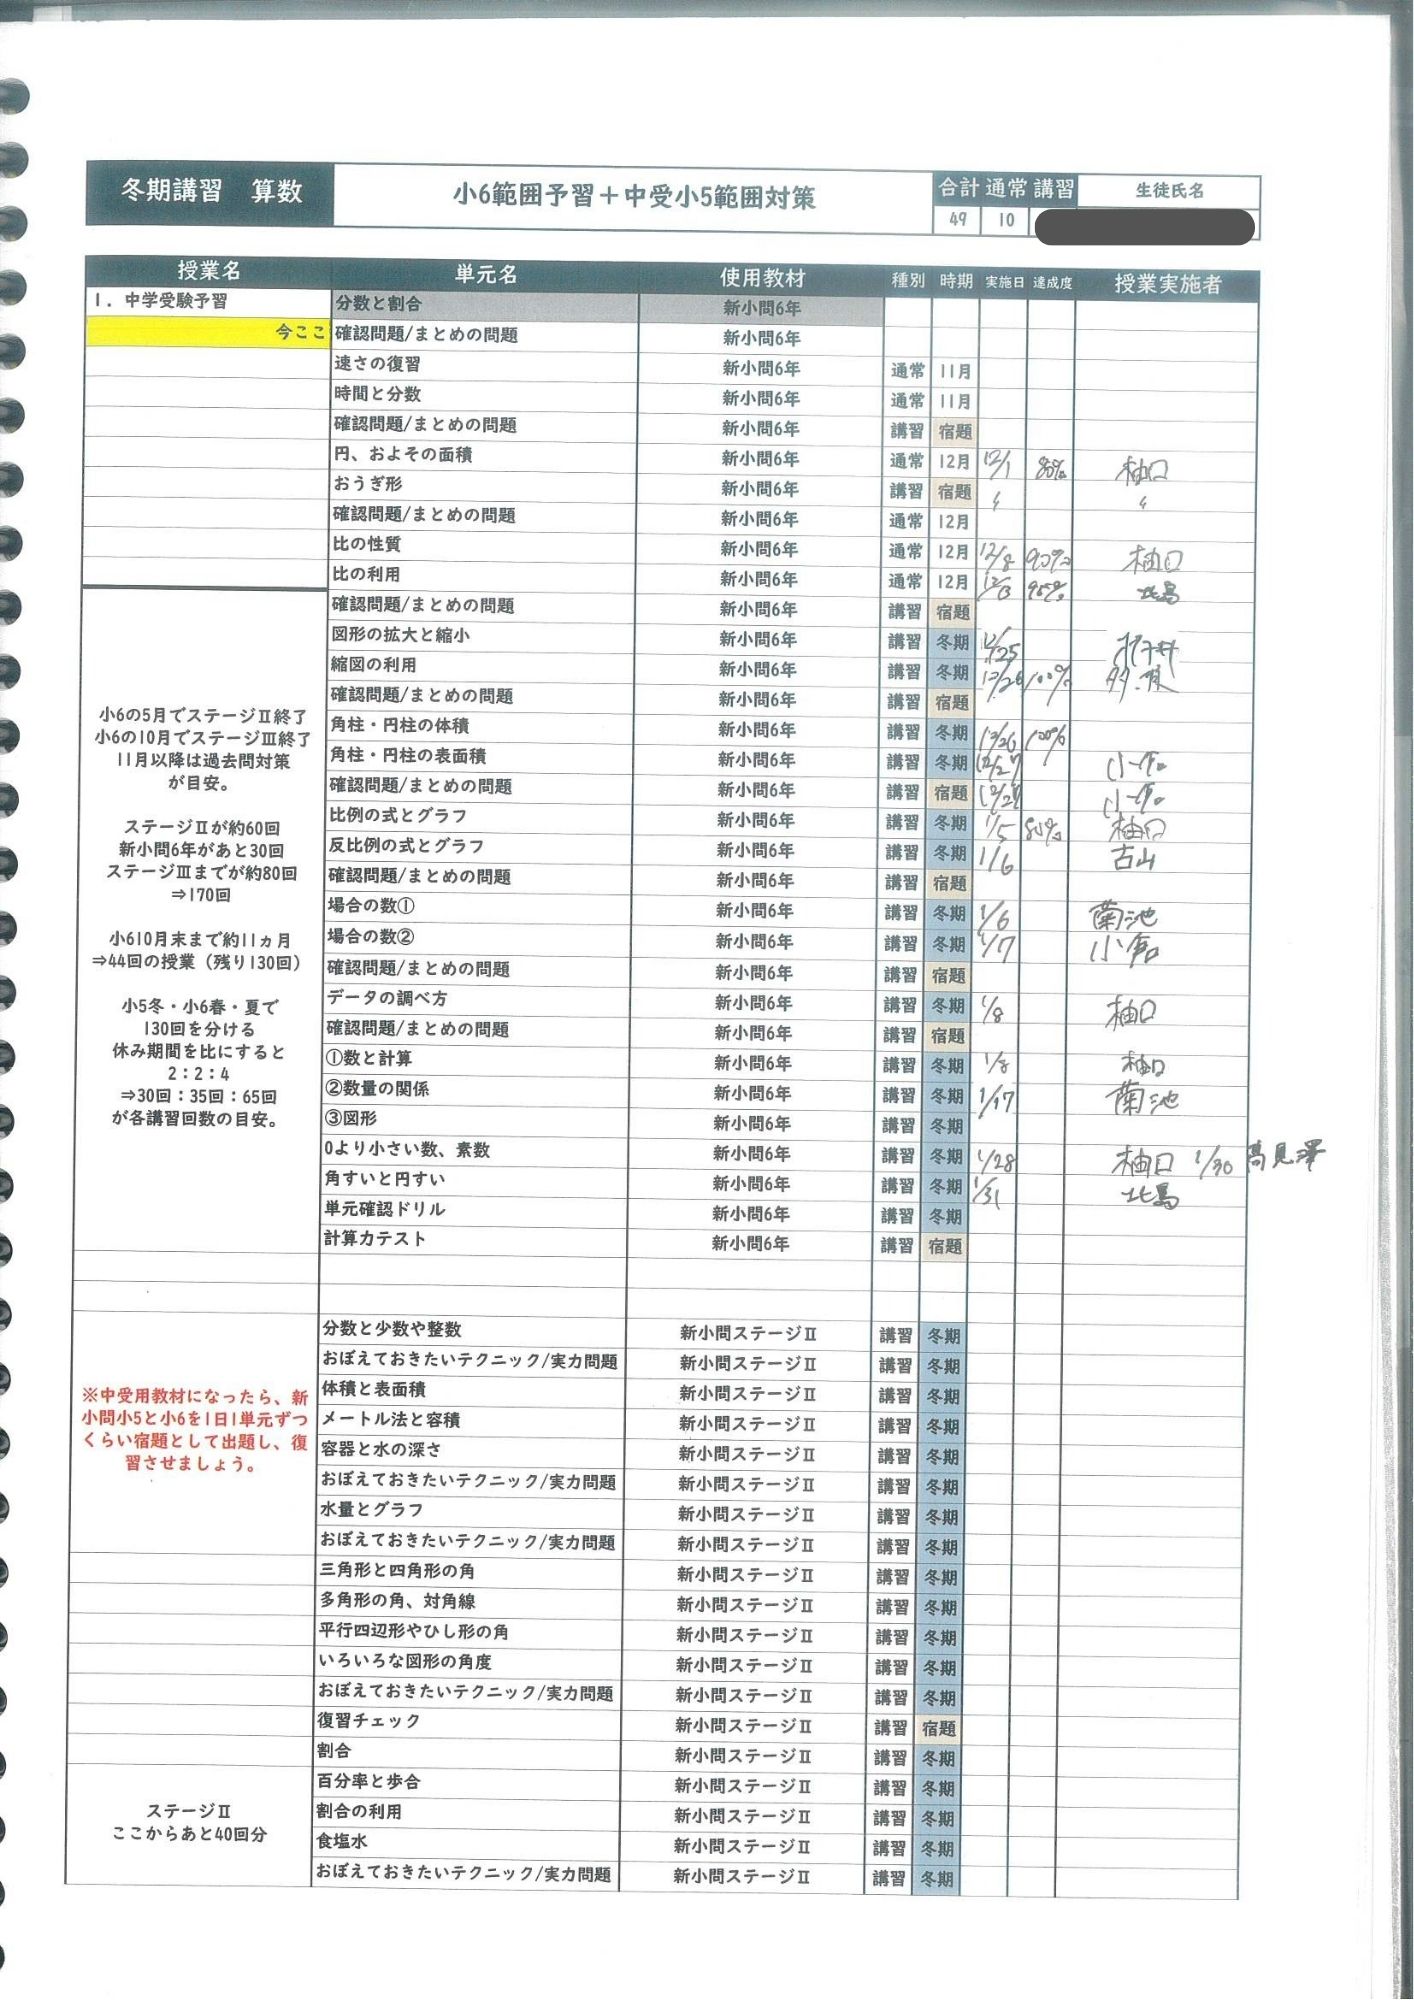 冬期講習 算数 小6範囲予習＋中受小5範囲対策 合計 通常 講習 生徒氏名
49 10
授業名 単元名 使用教材 種別 時期 実施日 達成度 授業実施者
1. 中学受験予習 分数と割合 新小問6年
今ここ 確認問題/まとめの問題 新小問6年
速さの復習 新小問6年 通常 11月
時間と分数 新小問6年 通常 11月
確認問題/まとめの問題 新小問6年 講習 宿題
円、およその面積 新小問6年 通常 12月 12/1 80% 柚口
おうぎ形 新小問6年 講習 宿題 〃 〃
確認問題/まとめの問題 新小問6年 通常 12月
比の性質 新小問6年 通常 12月 12/8 90% 柚口
比の利用 新小問6年 通常 12月 12/13 95% 北島
確認問題/まとめの問題 新小問6年 講習 宿題
図形の拡大と縮小 新小問6年 講習 冬期 12/25
縮図の利用 新小問6年 講習 冬期 12/26 100%
確認問題/まとめの問題 新小問6年 講習 宿題
角柱・円柱の体積 新小問6年 講習 冬期 12/26 100%
角柱・円柱の表面積 新小問6年 講習 冬期 12/27 小倉
確認問題/まとめの問題 新小問6年 講習 宿題 12/27 小倉
比例の式とグラフ 新小問6年 講習 冬期 1/5 80% 柚口
反比例の式とグラフ 新小問6年 講習 冬期 1/6 古山
確認問題/まとめの問題 新小問6年 講習 宿題
場合の数① 新小問6年 講習 冬期 1/6 菊池
場合の数② 新小問6年 講習 冬期 1/7 小倉
確認問題/まとめの問題 新小問6年 講習 宿題
データの調べ方 新小問6年 講習 冬期 1/8 柚口
確認問題/まとめの問題 新小問6年 講習 宿題
①数と計算 新小問6年 講習 冬期 1/8 柚口
②数量の関係 新小問6年 講習 冬期 1/17 菊池
③図形 新小問6年 講習 冬期
0より小さい数、素数 新小問6年 講習 冬期 1/28 柚口 1/30 高見澤
角すいと円すい 新小問6年 講習 冬期 1/31 北島
単元確認ドリル 新小問6年 講習 冬期
計算力テスト 新小問6年 講習 宿題
小6の5月でステージⅡ終了
小6の10月でステージⅢ終了
11月以降は過去問対策
が目安。
ステージⅡが約60回
新小問6年があと30回
ステージⅢまでが約80回
⇒170回
小610月末まで約11ヵ月
⇒44回の授業（残り130回）
小5冬・小6春・夏で
130回を分ける
休み期間を比にすると
2：2：4
⇒30回：35回：65回
が各講習回数の目安。
分数と少数や整数 新小問ステージⅡ 講習 冬期
おぼえておきたいテクニック/実力問題 新小問ステージⅡ 講習 冬期
体積と表面積 新小問ステージⅡ 講習 冬期
メートル法と容積 新小問ステージⅡ 講習 冬期
容器と水の深さ 新小問ステージⅡ 講習 冬期
おぼえておきたいテクニック/実力問題 新小問ステージⅡ 講習 冬期
水量とグラフ 新小問ステージⅡ 講習 冬期
おぼえておきたいテクニック/実力問題 新小問ステージⅡ 講習 冬期
※中受用教材になったら、新
小問小5と小6を1日1単元ずつ
くらい宿題として出題し、復
習させましょう。
三角形と四角形の角 新小問ステージⅡ 講習 冬期
多角形の角、対角線 新小問ステージⅡ 講習 冬期
平行四辺形やひし形の角 新小問ステージⅡ 講習 冬期
いろいろな図形の角度 新小問ステージⅡ 講習 冬期
おぼえておきたいテクニック/実力問題 新小問ステージⅡ 講習 冬期
復習チェック 新小問ステージⅡ 講習 宿題
割合 新小問ステージⅡ 講習 冬期
百分率と歩合 新小問ステージⅡ 講習 冬期
割合の利用 新小問ステージⅡ 講習 冬期
食塩水 新小問ステージⅡ 講習 冬期
おぼえておきたいテクニック/実力問題 新小問ステージⅡ 講習 冬期
ステージⅡ
ここからあと40回分